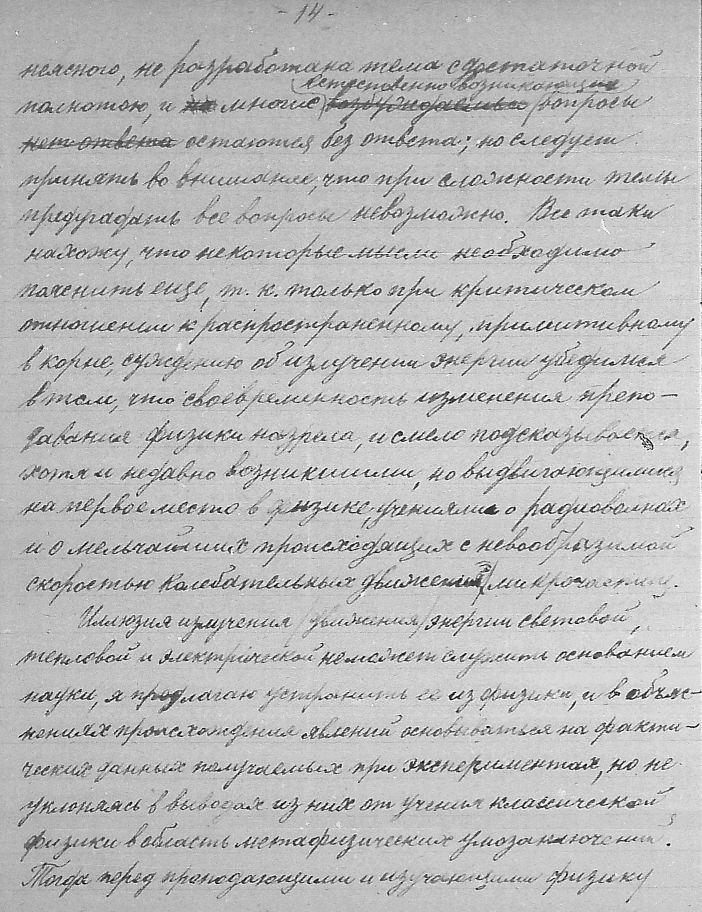 - 14 -
неясного, не разработана тема с достаточной
естественно возникающие
полнотою, и на многие возбуждаемые вопросы
нет ответа остаются без ответа; но следует
принять во внимание, что при сложности темы
предугадать все вопросы невозможно. Все таки
нахожу, что некоторые мысли необходимо
пояснить еще, т. к. только при критическом
отношении к распространенному, примитивному
в корне, суждению об излучении энергии убедимся
в том, что своевременность изменения препо-
давания физики назрела, и смело подсказывается,
хотя и недавно возникшими, но выдвигающимися
на первое место в физике, учениями о радиоволнах
и о мельчайших происходящих с невообразимой
скоростью колебательных движений микрочастиц.
Иллюзия излучения (движения) энергии световой,
тепловой и электрической не может служить основанием
науки, я предлагаю устранить ее из физики, и в объяс-
нениях происхождения явлений основываться на факти-
ческих данных получаемых при экспериментах, но не
уклоняясь в выводах из них от учения классической
физики в область метафизических умозаключений.
Тогда перед преподающими и изучающими физику